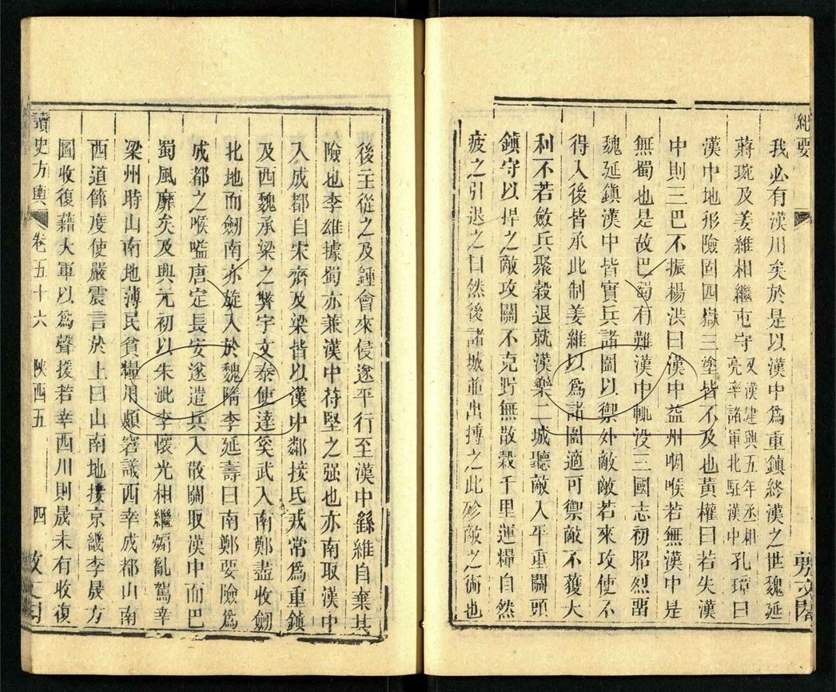 紀要
我必有漢川矣於是以漢中為重鎮終漢之世魏延
蔣琬及姜維相繼屯守又漢建興五年丞相亮率諸軍北駐漢中孔璋曰
漢中地形險固四嶽三塗皆不及也黃權曰若失漢
中則三巴不振楊洪曰漢中益州咽喉若無漢中是
無蜀也是故巴蜀有難漢中輒沒三國志初昭烈留
魏延鎮漢中皆實兵諸圍以禦外敵敵若來攻使不
得入後皆承此制姜維以為諸圍適可禦敵不獲大
利不若斂兵聚穀退就漢樂二城聽敵入平重關頭
鎮守以捍之敵攻關不克野無散穀千里運糧自然
疲之引退之日然後諸城並出搏之此殄敵之術也
後主從之及鍾會來侵遂平行至漢中繇維自棄其
險也李雄據蜀亦兼漢中苻堅之强也亦南取漢中
入成都自宋齊及梁皆以漢中鄰接氐戎常為重鎮
及西魏承梁之弊宇文泰使達奚武入南鄭盡收劒
北地而劒南亦旋入於魏隋李延壽曰南鄭要險為
成都之喉嗌唐定長安遂遣兵入散關取漢中而巴
蜀風靡矣及興元初以朱泚李懷光相繼煽亂駕幸
梁州時山南地薄民貧糧用頗窘議西幸成都山南
西道節度使嚴震言於上曰山南地接京畿李晟方
圖收復藉大軍以為聲援若幸西川則晟未有收復
讀史方輿
卷五十六
陝西五
四
敷文閣